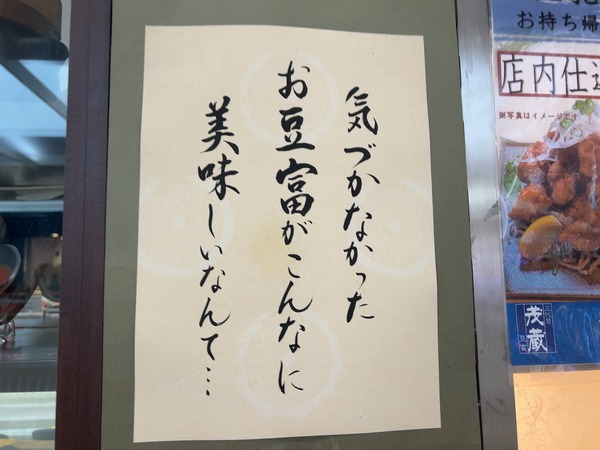 気づかなかった
お豆富がこんなに
美味しいなんて…
お持ち帰
店内仕込
※写真はイメージです
三代目
茂蔵
豆富